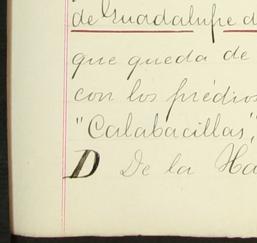 de Guadalupe d
que queda de
con los prédios
"Calabacillas",
D De la Ha